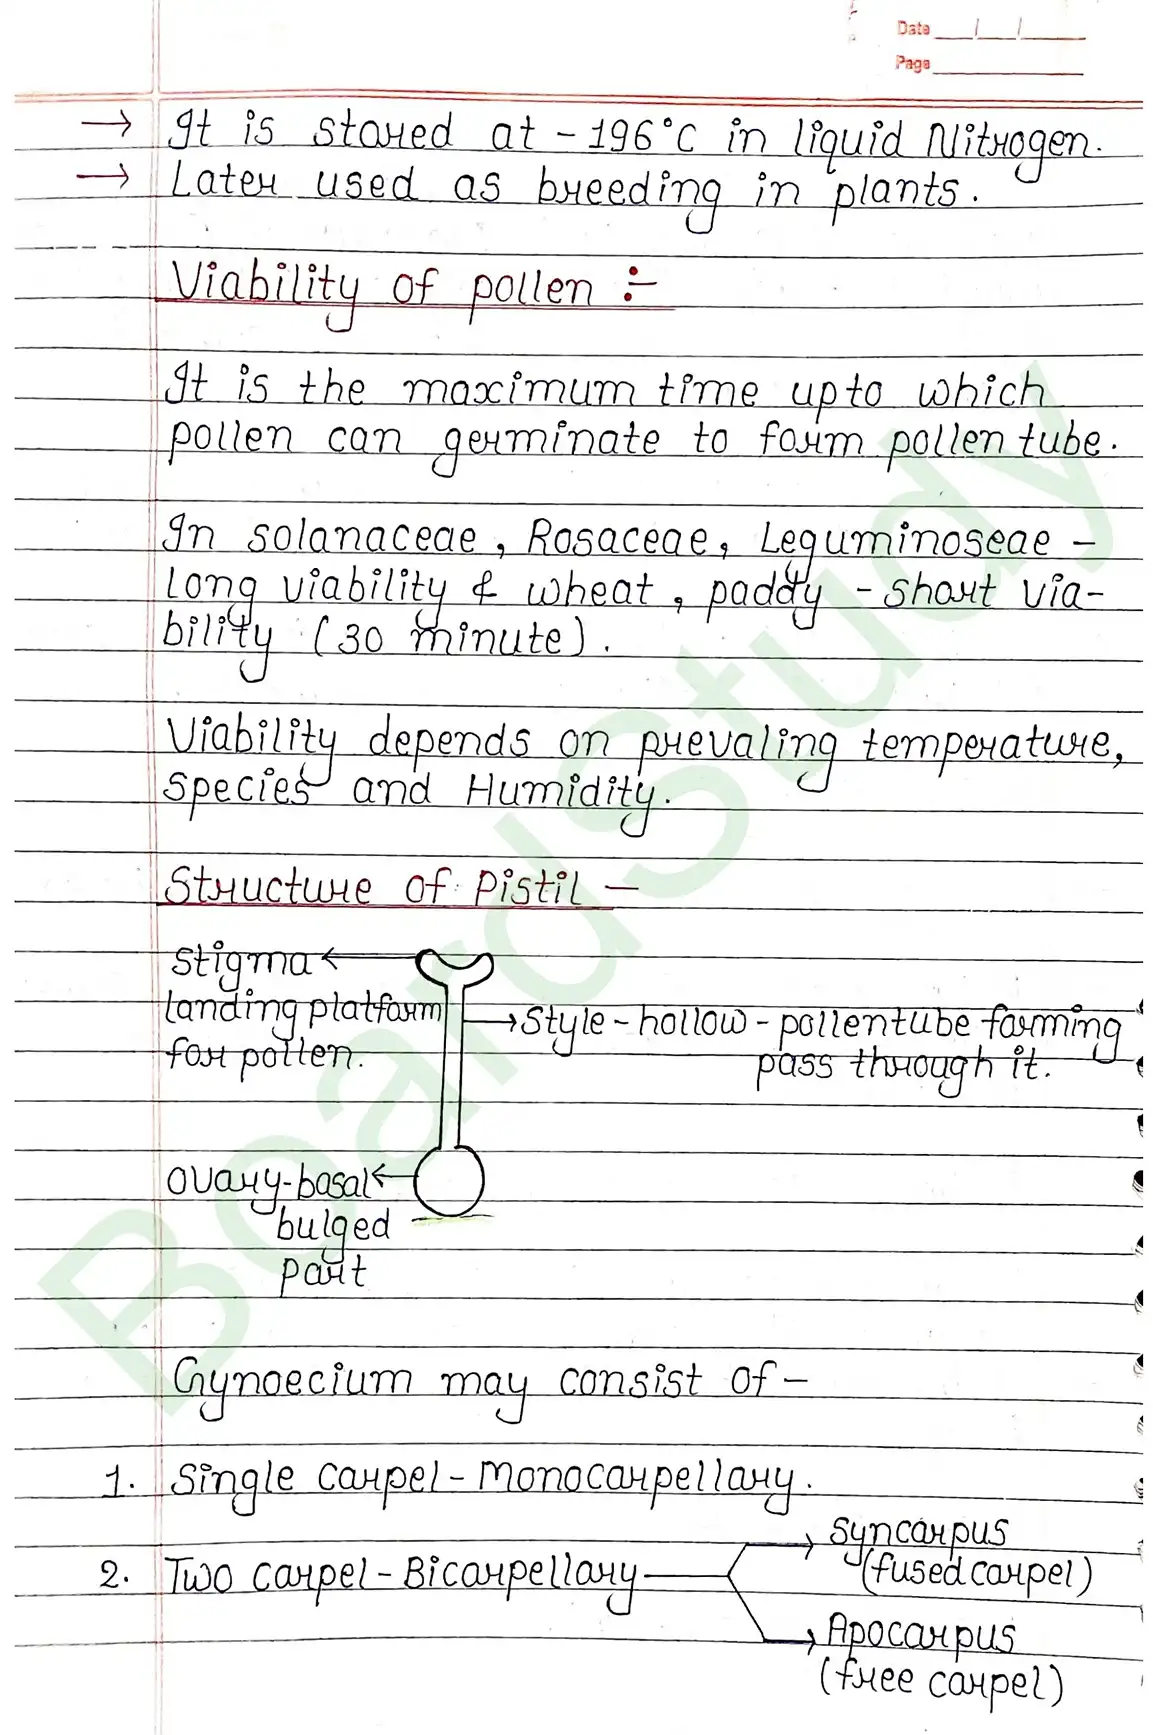 Date / /
Page
→ It is stored at -196°C in liquid Nitrogen.
→ Later used as breeding in plants.
Viability of pollen :-
It is the maximum time upto which
pollen can germinate to form pollen tube.
In solanaceae, Rosaceae, Leguminoseae -
long viability & wheat, paddy - short via-
bility (30 minute).
Viability depends on prevaling temperature,
species and Humidity.
Structure of Pistil -
stigma
landing platform
for pollen.
Style - hollow - pollentube forming
pass through it.
ovary - basal
bulged
part
Gynoecium may consist of -
1. Single carpel - Monocarpellary.
2. Two carpel - Bicarpellary
Syncarpus
(fused carpel)
Apocarpus
(free carpel)
BoardStudy